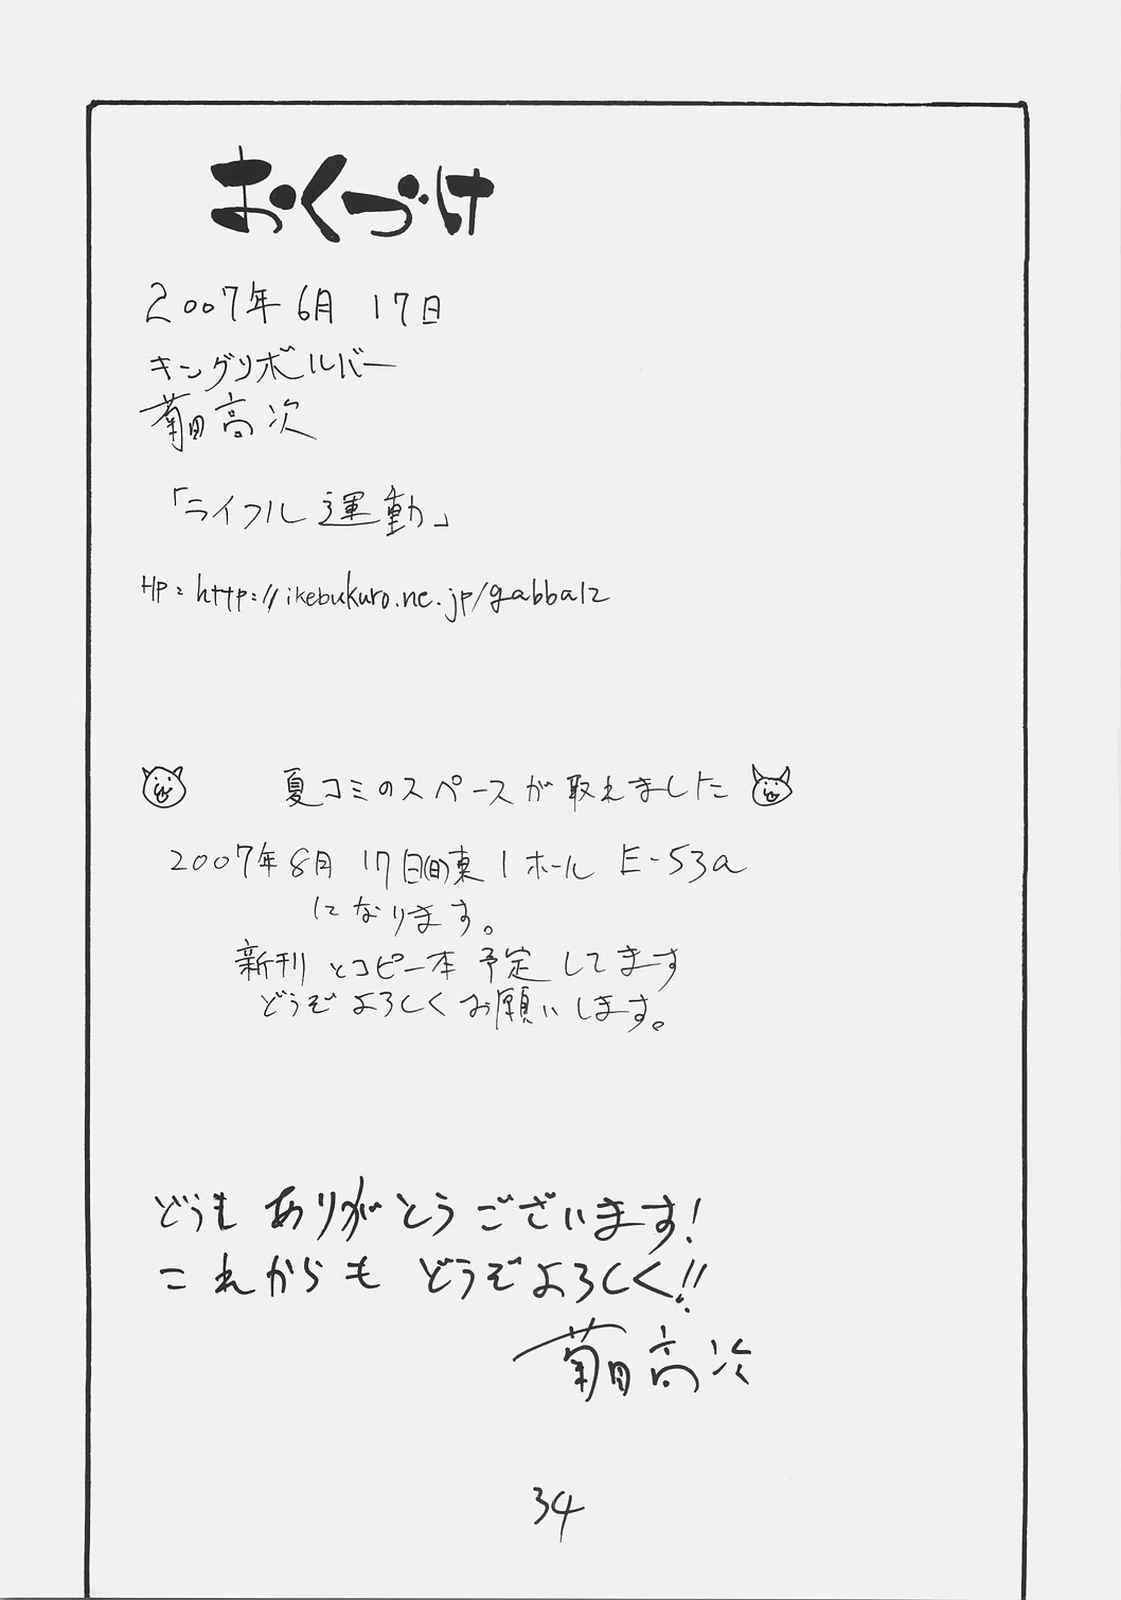 おくづけ
2007年6月17日
キングリボルバー
菊田高次
「ライフル運動」
HP: http://ikebukuro.ne.jp/gabbalz
夏コミのスペースが取れました
2007年8月17日(日)東1ホール E-53a
になります。
新刊とコピー本予定してます
どうぞよろしくお願いします。
どうもありがとうございます!
これからもどうぞよろしく!!
菊田高次
34